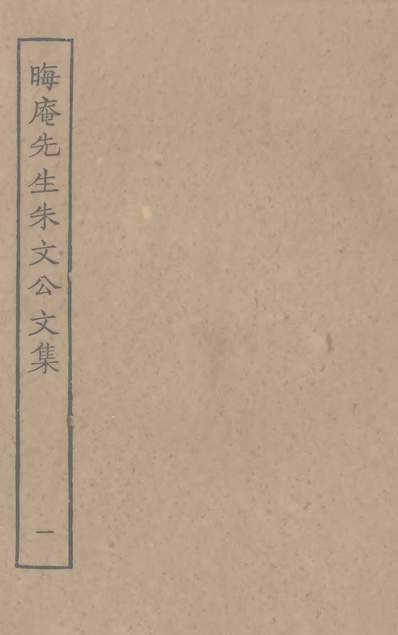 晦庵先生朱文公文集
一